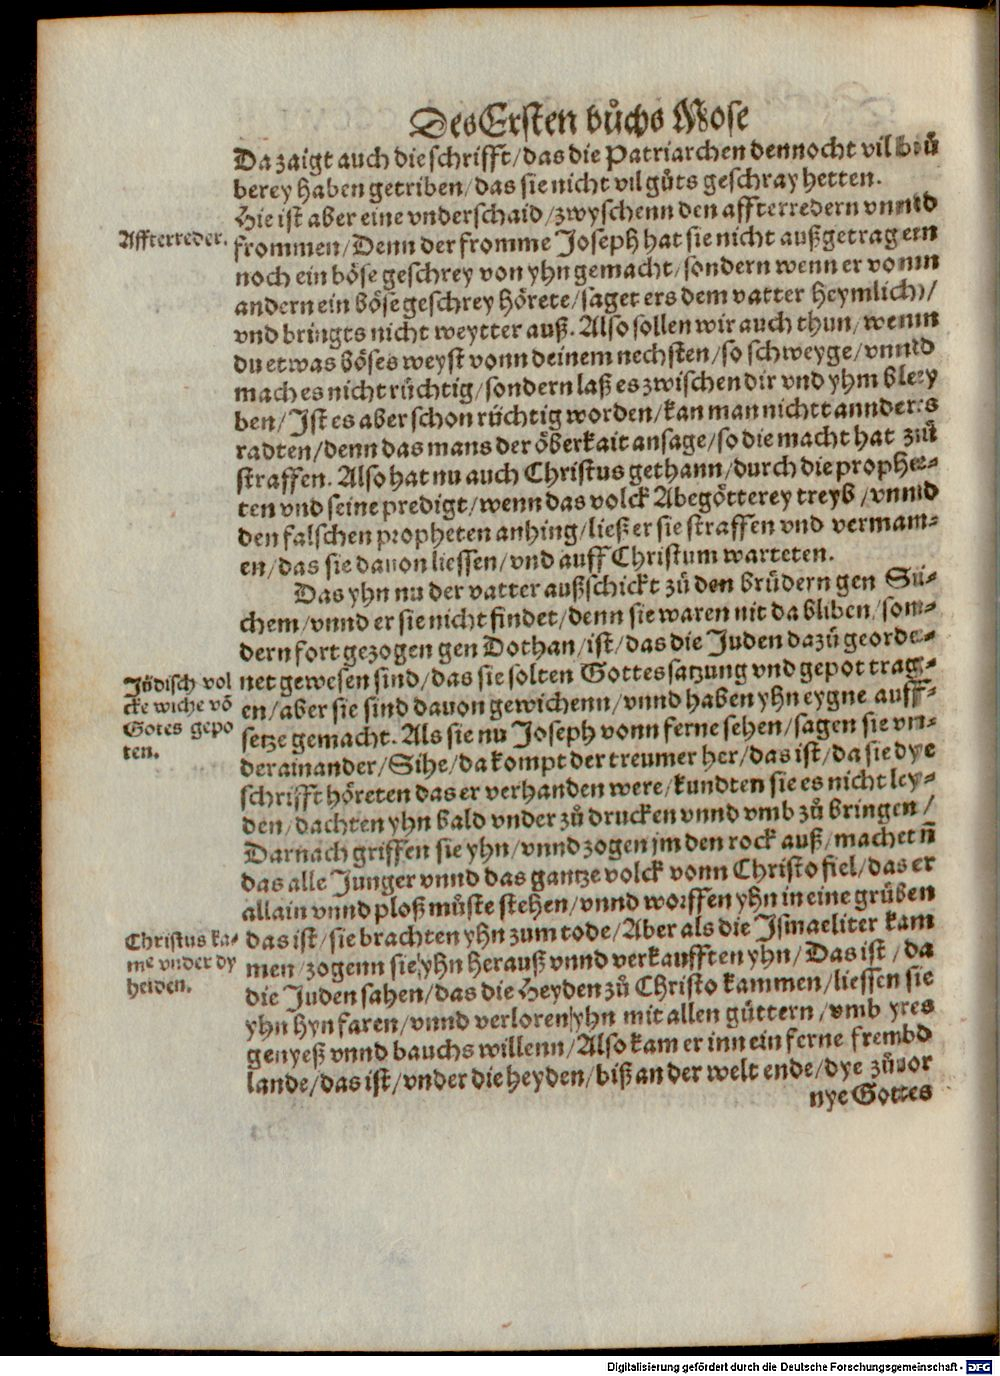 Des Ersten bůchs Mose
Da zaigt auch die schrifft/das die Patriarchen dennocht vil bů
berey haben getriben/das sie nicht vil gůts geschray hetten.
Hie ist aber eine vnderschaid/zwyschenn den affterredern vnnd
Affterreder.
frommen/Denn der fromme Joseph hat sie nicht außgetragern
noch ein böse geschrey von yhn gemacht/sondern wenn er vonn
andern ein böse geschrey hörete/saget ers dem vatter heymlich/
vnd bringts nicht weytter auß. Also sollen wir auch thun/wenn
du etwas böses weyst vonn deinem nechsten/so schweyge/vnnd
mach es nicht rüchtig/sondern laß es zwischen dir vnd yhm bley
ben/Ist es aber schon rüchtig worden/kan man nichtt annders
radten/denn das mans der öberkait ansage/so die macht hat zů
straffen. Also hat nu auch Christus gethann/durch die prophe-
ten vnd seine predigt/wenn das volck Abegötterey treyb/vnnd
den falschen propheten anhing/ließ er sie straffen vnd verman-
en/das sie dauon liessen/vnd auff Christum warteten.
Das yhn nu der vatter außschickt zů den brüdern gen Si-
chem/vnnd er sie nicht findet/denn sie waren nit da bliben/son-
dern fort gezogen gen Dothan/ist/das die Juden dazů georde-
net gewesen sind/das sie solten Gottes satzung vnd gepot trag-
Jüdisch vol
cke wiche vō
Gotes gepo
ten.
en/aber sie sind dauon gewichenn/vnnd haben yhn eygne auff-
setze gemacht. Als sie nu Joseph vonn ferne sehen/sagen sie vn-
derainander/Sihe/da kompt der treumer her/das ist/da sie dye
schrifft höreten das er verhanden were/kundten sie es nicht ley-
den/dachten yhn bald vnder zů drucken vnnd vmb zů bringen/
Darnach griffen sie yhn/vnnd zogen jm den rock auß/machet n̄
das alle Junger vnnd das gantze volck vonn Christo fiel/das er
allain vnnd ploß můste stehen/vnnd worffen yhn in eine grůben
das ist/sie brachten yhn zum tode/Aber als die Ismaeliter kam
Christus ka-
me vnder dy
heiden.
men/zogenn sie yhn herauß vnnd verkaufften yhn/Das ist/da
die Juden sahen/das die Heyden zů Christo kammen/liessen sie
yhn hyn faren/vnnd verloren yhn mit allen güttern/vmb yres
genyeß vnnd bauchs willenn/Also kam er inn ein ferne frembd
lande/das ist/vnder die heyden/biß an der welt ende/dye zůuor
nye Gottes
Digitalisierung gefördert durch die Deutsche Forschungsgemeinschaft - DFG